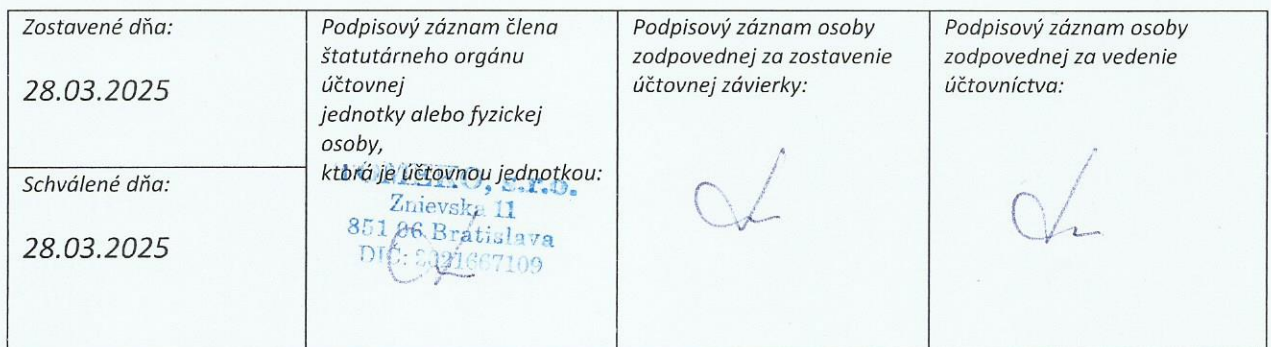 Zostavené dňa:
28.03.2025
Schválené dňa:
28.03.2025
Podpisový záznam člena
štatutárneho orgánu
účtovnej
jednotky alebo fyzickej
osoby,
ktorá je účtovnou jednotkou:
s.r.o.
Znievska 11
851 06 Bratislava
DIČ: 2021667109
Podpisový záznam osoby
zodpovednej za zostavenie
účtovnej závierky:
Podpisový záznam osoby
zodpovednej za vedenie
účtovníctva: